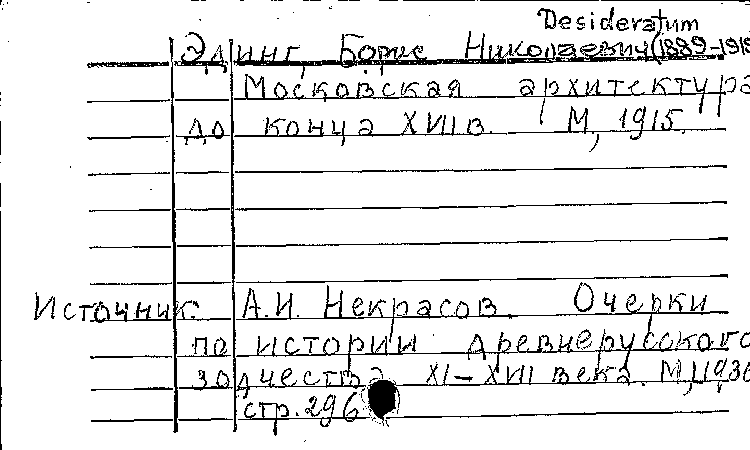 Desideratum
Эдинг, Борис Николаевич (1889-1919
Московская архитектура
до конца XVII в. М, 1915.
Источник: А.И. Некрасов. Очерки
по истории древнерусского
зодчества XI-XVII века. М, 1936
стр. 296